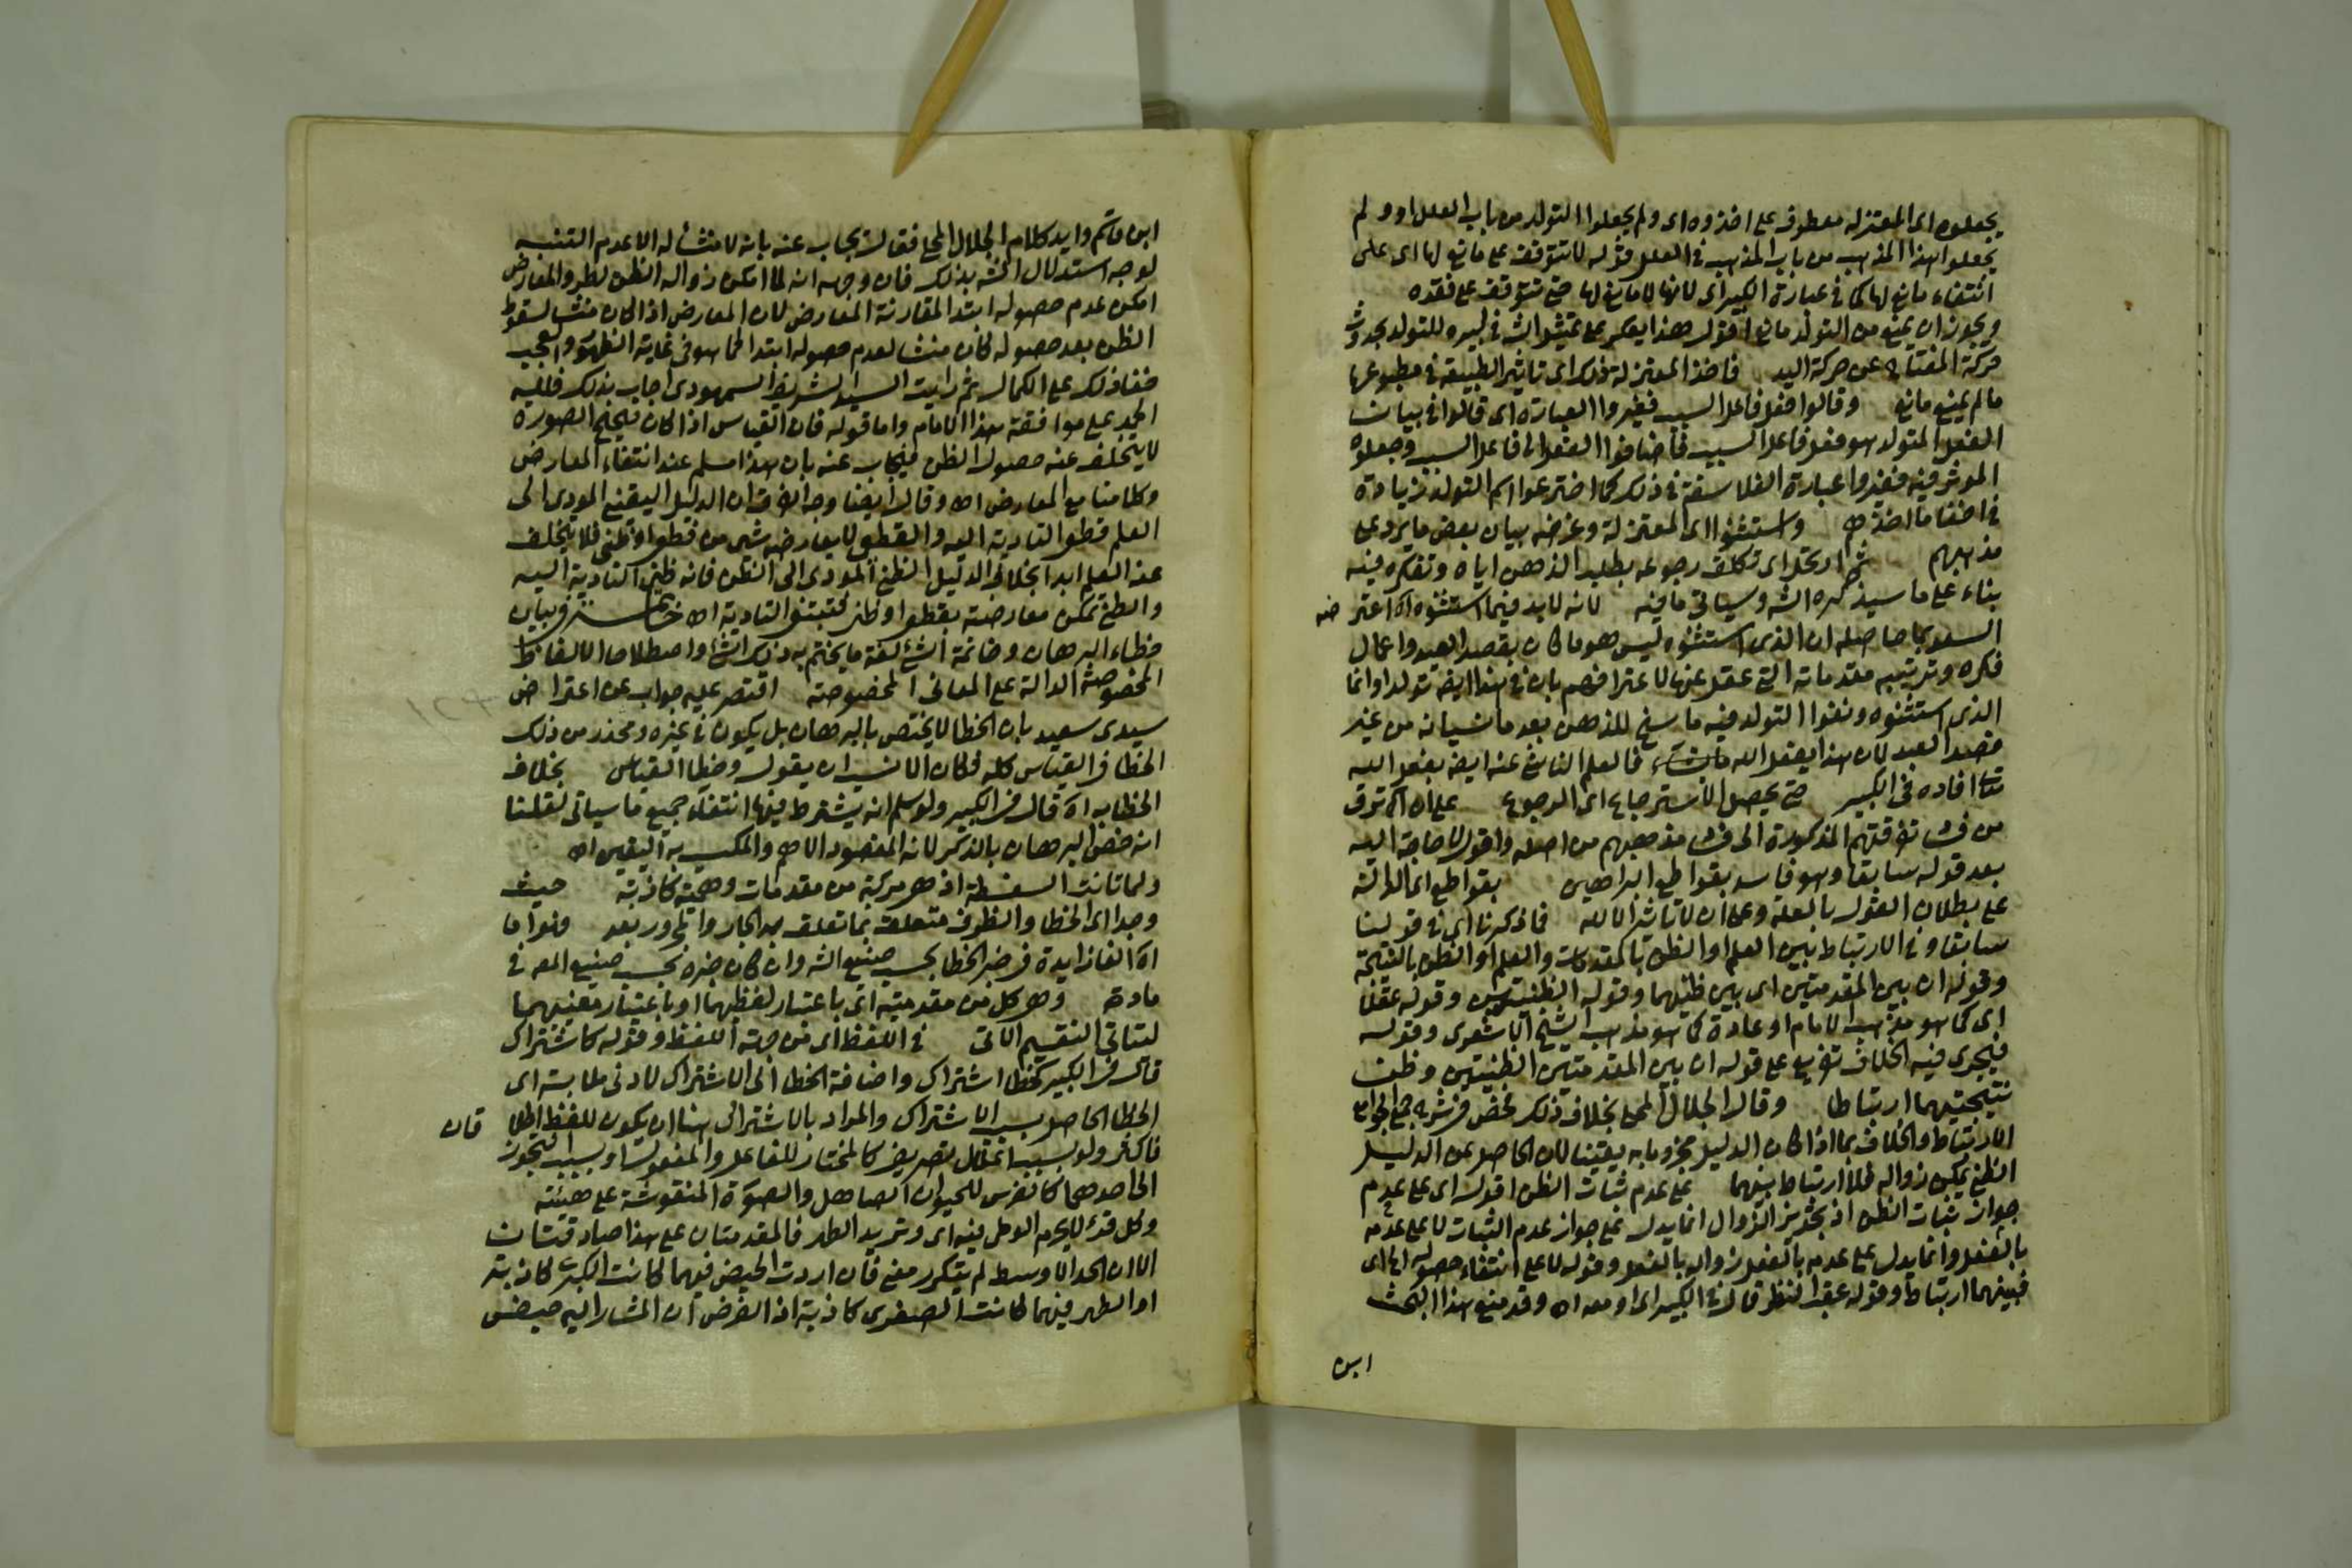 يجعلوه اى المعتزلة معطوف على اخذوه اى ولم يجعلوا التولد من باب العلل او ولم
يجعلوا هذا المذهب من باب المذهب فى العلل قوله لا تتوقف على مانع لها اى على
انتفاء مانع لها كما فى عبارة الكبير اى لانها لا مانع لها حتى تتوقف على فقده
ويجوز ان يمنع من التولد مانع اقول هذا يعكر على تمثيل الش فى كبيره للتولد بحدوث
حركة المفتاح عن حركة اليد فاخذ المعتزلة ذلك اى تاثير الطبيعة فى مطبوعها
ما لم يمنع مانع وقالوا فعل فاعل السبب فغيروا العبارة اى قالوا فى بيان
الفعل المتولد هو فعل فاعل السبب فاضافوا الفعل الى فاعل السبب وجعلوه
الموثر فيه فغيروا عبارة الفلاسفة فى ذلك كما اخترعوا اسم التولد زيادة
فى اخفا ما اخذوه واستثنوا اى المعتزلة وغرضه بيان بعض ما يرد على
مذهبهم اى تكلف رجوعه بطلب الذهن اياه وتفكره فيه
بناء على ما سيذكره الش وسياتى ما فيه لانه لا بد فيما استثنوه اه اعترضه
السعد بما حاصله ان الذى استثنوه ليس هو ما كان بقصد العبد واعمال
فكره وترتيبه مقدماته التى عقل عنها لاعترافهم بان فى هذا ايضه تولدا وانما
الذى استثنوه ونفوا التولد فيه ما سنح للذهن بعد ما نسيانه من غير
قصد العبد لان هذا بفعل الله فالعلم الناشئ عنه ايضه بفعل الله
تعا افاده فى الكبير حتى يحصل الاسترجاع اى الرجوع على انه اه ترق
من تفرقتهم المذكورة الى مذهبهم من اصله واقول لا حاجة اليه
بعد قوله سابقا وهو فاسد بقواطع البراهين بقواطع اى الدالة
على بطلان القول بالعلة وعلى ان لا تاثير الا لله فما ذكرنا اى فى قولنا
سابقا وفى الارتباط بين العلم او الظن بالمقدمات والعلم او الظن بالنتيجة
وقوله ان بين المقدمتين اى بين ظنيهما وقوله الظنيتين وقوله عقلا
اى كما هو مذهب الامام او عادة كما هو مذهب الشيخ الاشعرى وقوله
فيجرى فيه الخلاف تفريع على قوله ان بين المقدمتين الظنيتين وظن
نتيجتيهما ارتباطا وقال الجلال المحلى بخلاف ذلك فخص فى شرحه جمع الجوامع
الارتباط والخلاف بما اذا كان الدليل مجزوما به يقينا لان الحاصل عن الدليل
الظنى يمكن زواله فلا ارتباط بينهما على عدم ثبات الظن اقول اى على عدم
جواز ثبات الظن اذ تجويز الزوال انما يدل على جواز عدم الثبات لا على عدمه
بالفعل وانما يدل على عدمه بالفعل زواله بالفعل وقوله لا على انتفاء حصوله اى
فبينهما ارتباط وقوله عقب النظر قال فى الكبير اى او معه اه وقد منع هذا البحث
ابن
ابن قاسم وايد كلام الجلال المحلى فقال يجاب عنه بانه لا منشا له الا عدم التنبيه
لوجه استدلال الش بذلك فان وجهه انه لما امكن زوال الظن لطرو المعارض
امكن عدم حصوله ابتدا لمقارنة المعارض لان المعارض اذا كان منشا لسقوط
الظن بعد حصوله كان منشا لعدم حصوله ابتدا كما هو فى غاية الظهور والعجب
خفا ذلك على الكمال ثم رايت السيد الشريف السمهودى اجاب بذلك فلله
الحمد على موافقة هذا الامام واما قوله فان القياس اذا كان صحيح الصورة
لا يتخلف عنه حصول الظن فيجاب عنه بان هذا مسلم عند انتفاء المعارض
وكلامنا مع المعارض اه وقال ايضا وجه الفرق ان الدليل اليقينى المودى الى
العلم قطعى التادية اليه والقطعى لا يعارضه شئ من قطعى او ظنى فلا يتخلف
عنه العلم ابدا بخلاف الدليل الظنى المودى الى الظن فانه ظنى التادية اليه
والظنى تمكن معارضته بقطعى او ظنى فتنتفى التادية اه خاتمة وبيان
خطاء البرهان وخاتمة الشئ لغة ما يختم به ذلك الشئ واصطلاحا الالفاظ
المخصوصة الدالة على المعانى المخصوصة اقتصر عليه جواب عن اعتراض
سيدى سعيد بان الخطا لا يختص بالبرهان بل يكون فى غيره ويحذر من ذلك
الخطا فى القياس كله فكان الانسب ان يقول وخطا القياس بخلاف
الخطابه اه قال فى الكبير ولو سلم انه يشترط فيها انتفاء جميع ما سياتى لقلنا
انه خص البرهان بالذكر لانه المقصود الاهم والمكسب به اليقين اه
ولما كانت السفسطة اذ هى مركبة من مقدمات وهمية كاذبة حيث
وجدا اى الخطا والظرف متعلق بما تعلق به الجار والمجرور بعد
اه الفا زايدة فى خبر الخطا بحسب صنيع الش وان كان خبره بحسب صنيع المص فى
مادة وهو كل من مقدمتيه اى باعتبار لفظيهما او باعتبار معنيهما
ليتاتى التقسيم الاتى فى اللفظ اى من جهة اللفظ وقوله كاشتراك
قال فى الكبير كخطا اشتراك واضافة الخطا الى الاشتراك لادنى ملابسة اى
الخطا الحاصل بسبب الاشتراك والمراد بالاشتراك هنا ان يكون للفظ اطلا قان
فاكثر ولو بسبب اعتلال تصريف كالمختار للفاعل والمفعول او بسبب تجوز
الى احدهما كالفرس للحيوان الصاهل والصورة المنقوشة على هيئته
وكل قرء لا يحرم الوطى فيه اى وتريد الطهر فالمقدمتان على هذا صادقتان
الا ان الحد الاوسط لم يتكرر معنى فان اردت الحيض فيهما كانت الكبرى كاذبة
او الطهر فيهما كانت الصغرى كاذبة اذ الفرض ان المشار اليه حيض